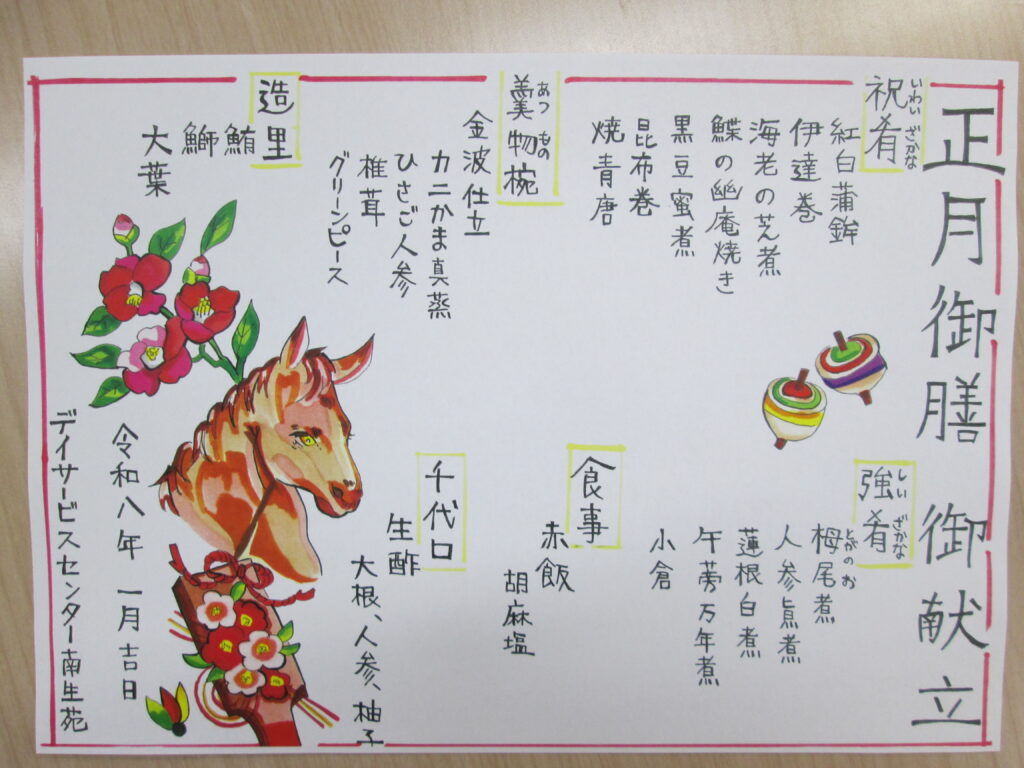 正月御膳　御献立
いわい　ざかな
祝肴
紅白蒲鉾
伊達巻
海老の芝煮
鰈の幽庵焼き
黒豆蜜煮
昆布巻
焼青唐
あつ　もの
羹物椀
金波仕立
カニかま真蒸
ひさご人参
椎茸
グリーンピース
造里
鮪
鰤
大葉
しい　ざかな
強肴
とがのお
栂尾煮
人参旨煮
蓮根白煮
午蒡万年煮
小倉
食事
赤飯
胡麻塩
千代口
生酢
大根、人参、柚子
令和八年　一月吉日
デイサービスセンター南生苑